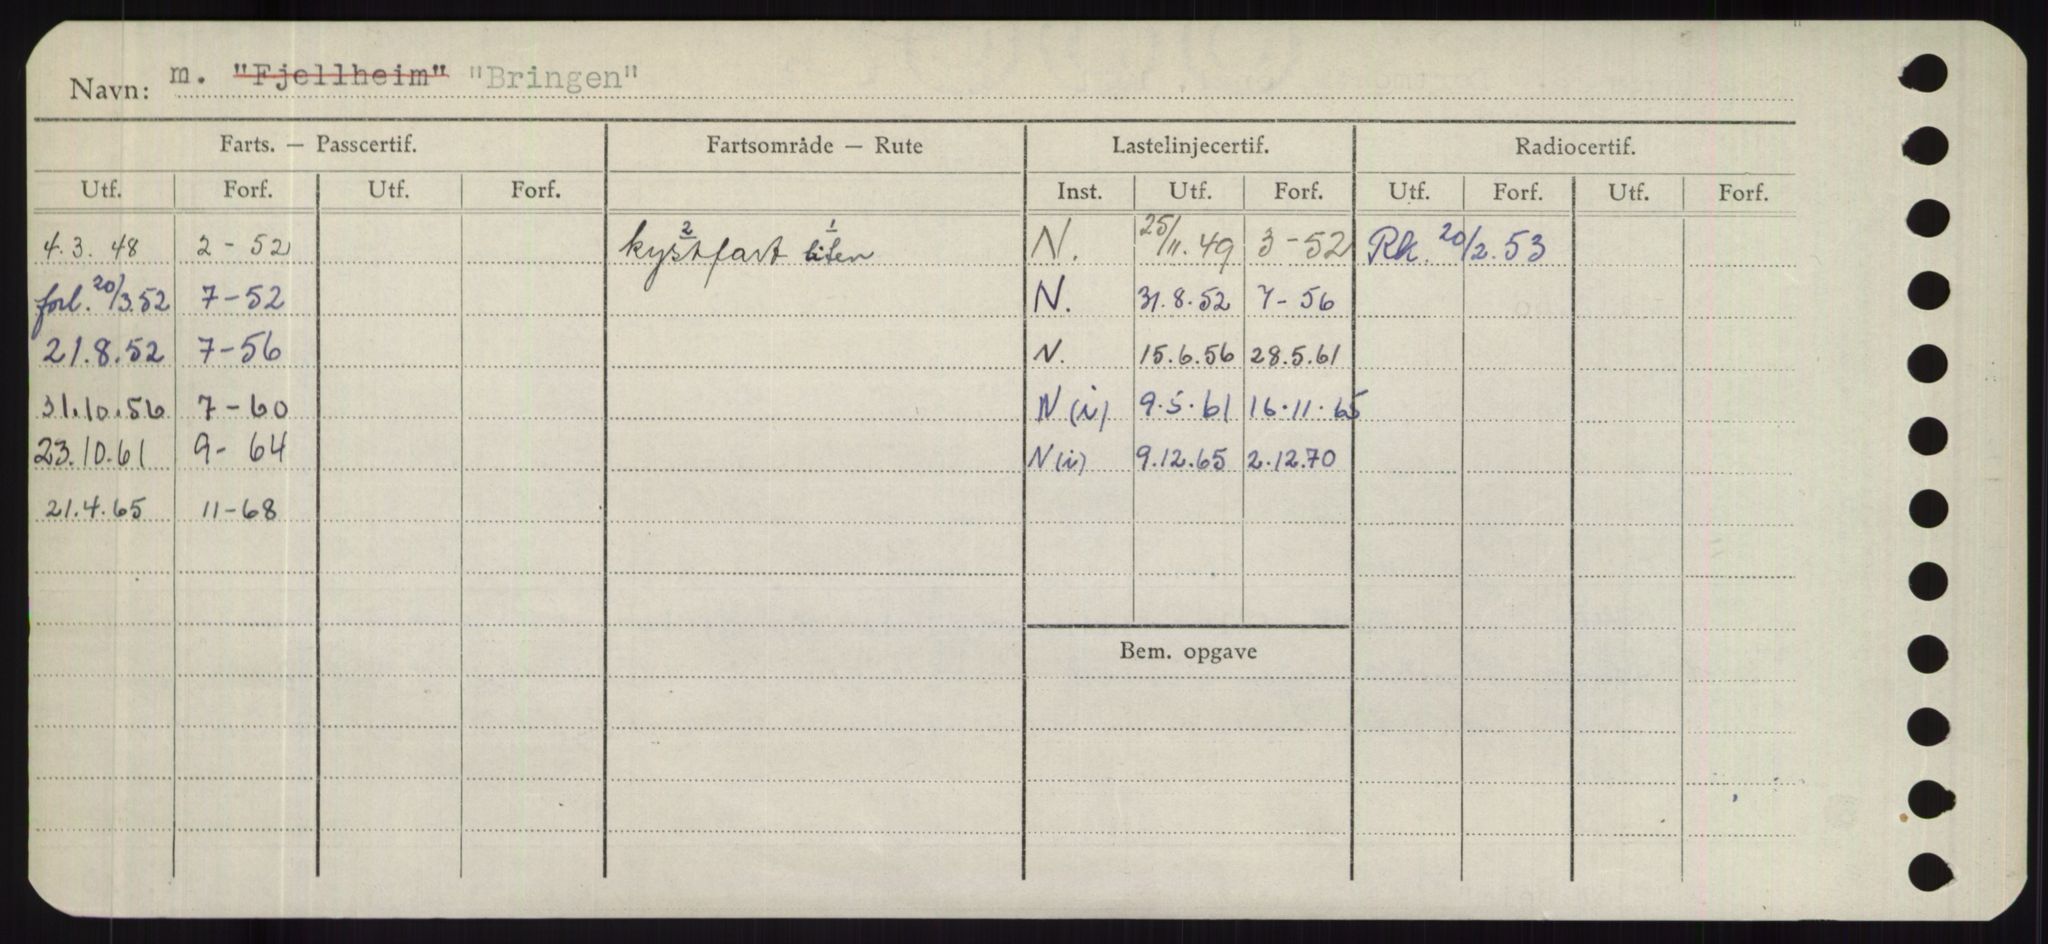 Navn: m. "Fjellheim" "Bringen"
Farts. — Passcertif. Fartsområde — Rute Lastelinjecertif. Radiocertif.
Utf. Forf. Utf. Forf. Inst. Utf. Forf. Utf. Forf. Utf. Forf.
4.3.48 2-52 kystfart 2 liten 1 N. 25/11.49 3-52 Rk. 20/2.53
forl. 20/3.52 7-52 N. 31.8.52 7-56
21.8.52 7-56 N. 15.6.56 28.5.61
31.10.56 7-60 N(i) 9.5.61 16.11.65
23.10.61 9-64 N(i) 9.12.65 2.12.70
21.4.65 11-68
Bem. opgave